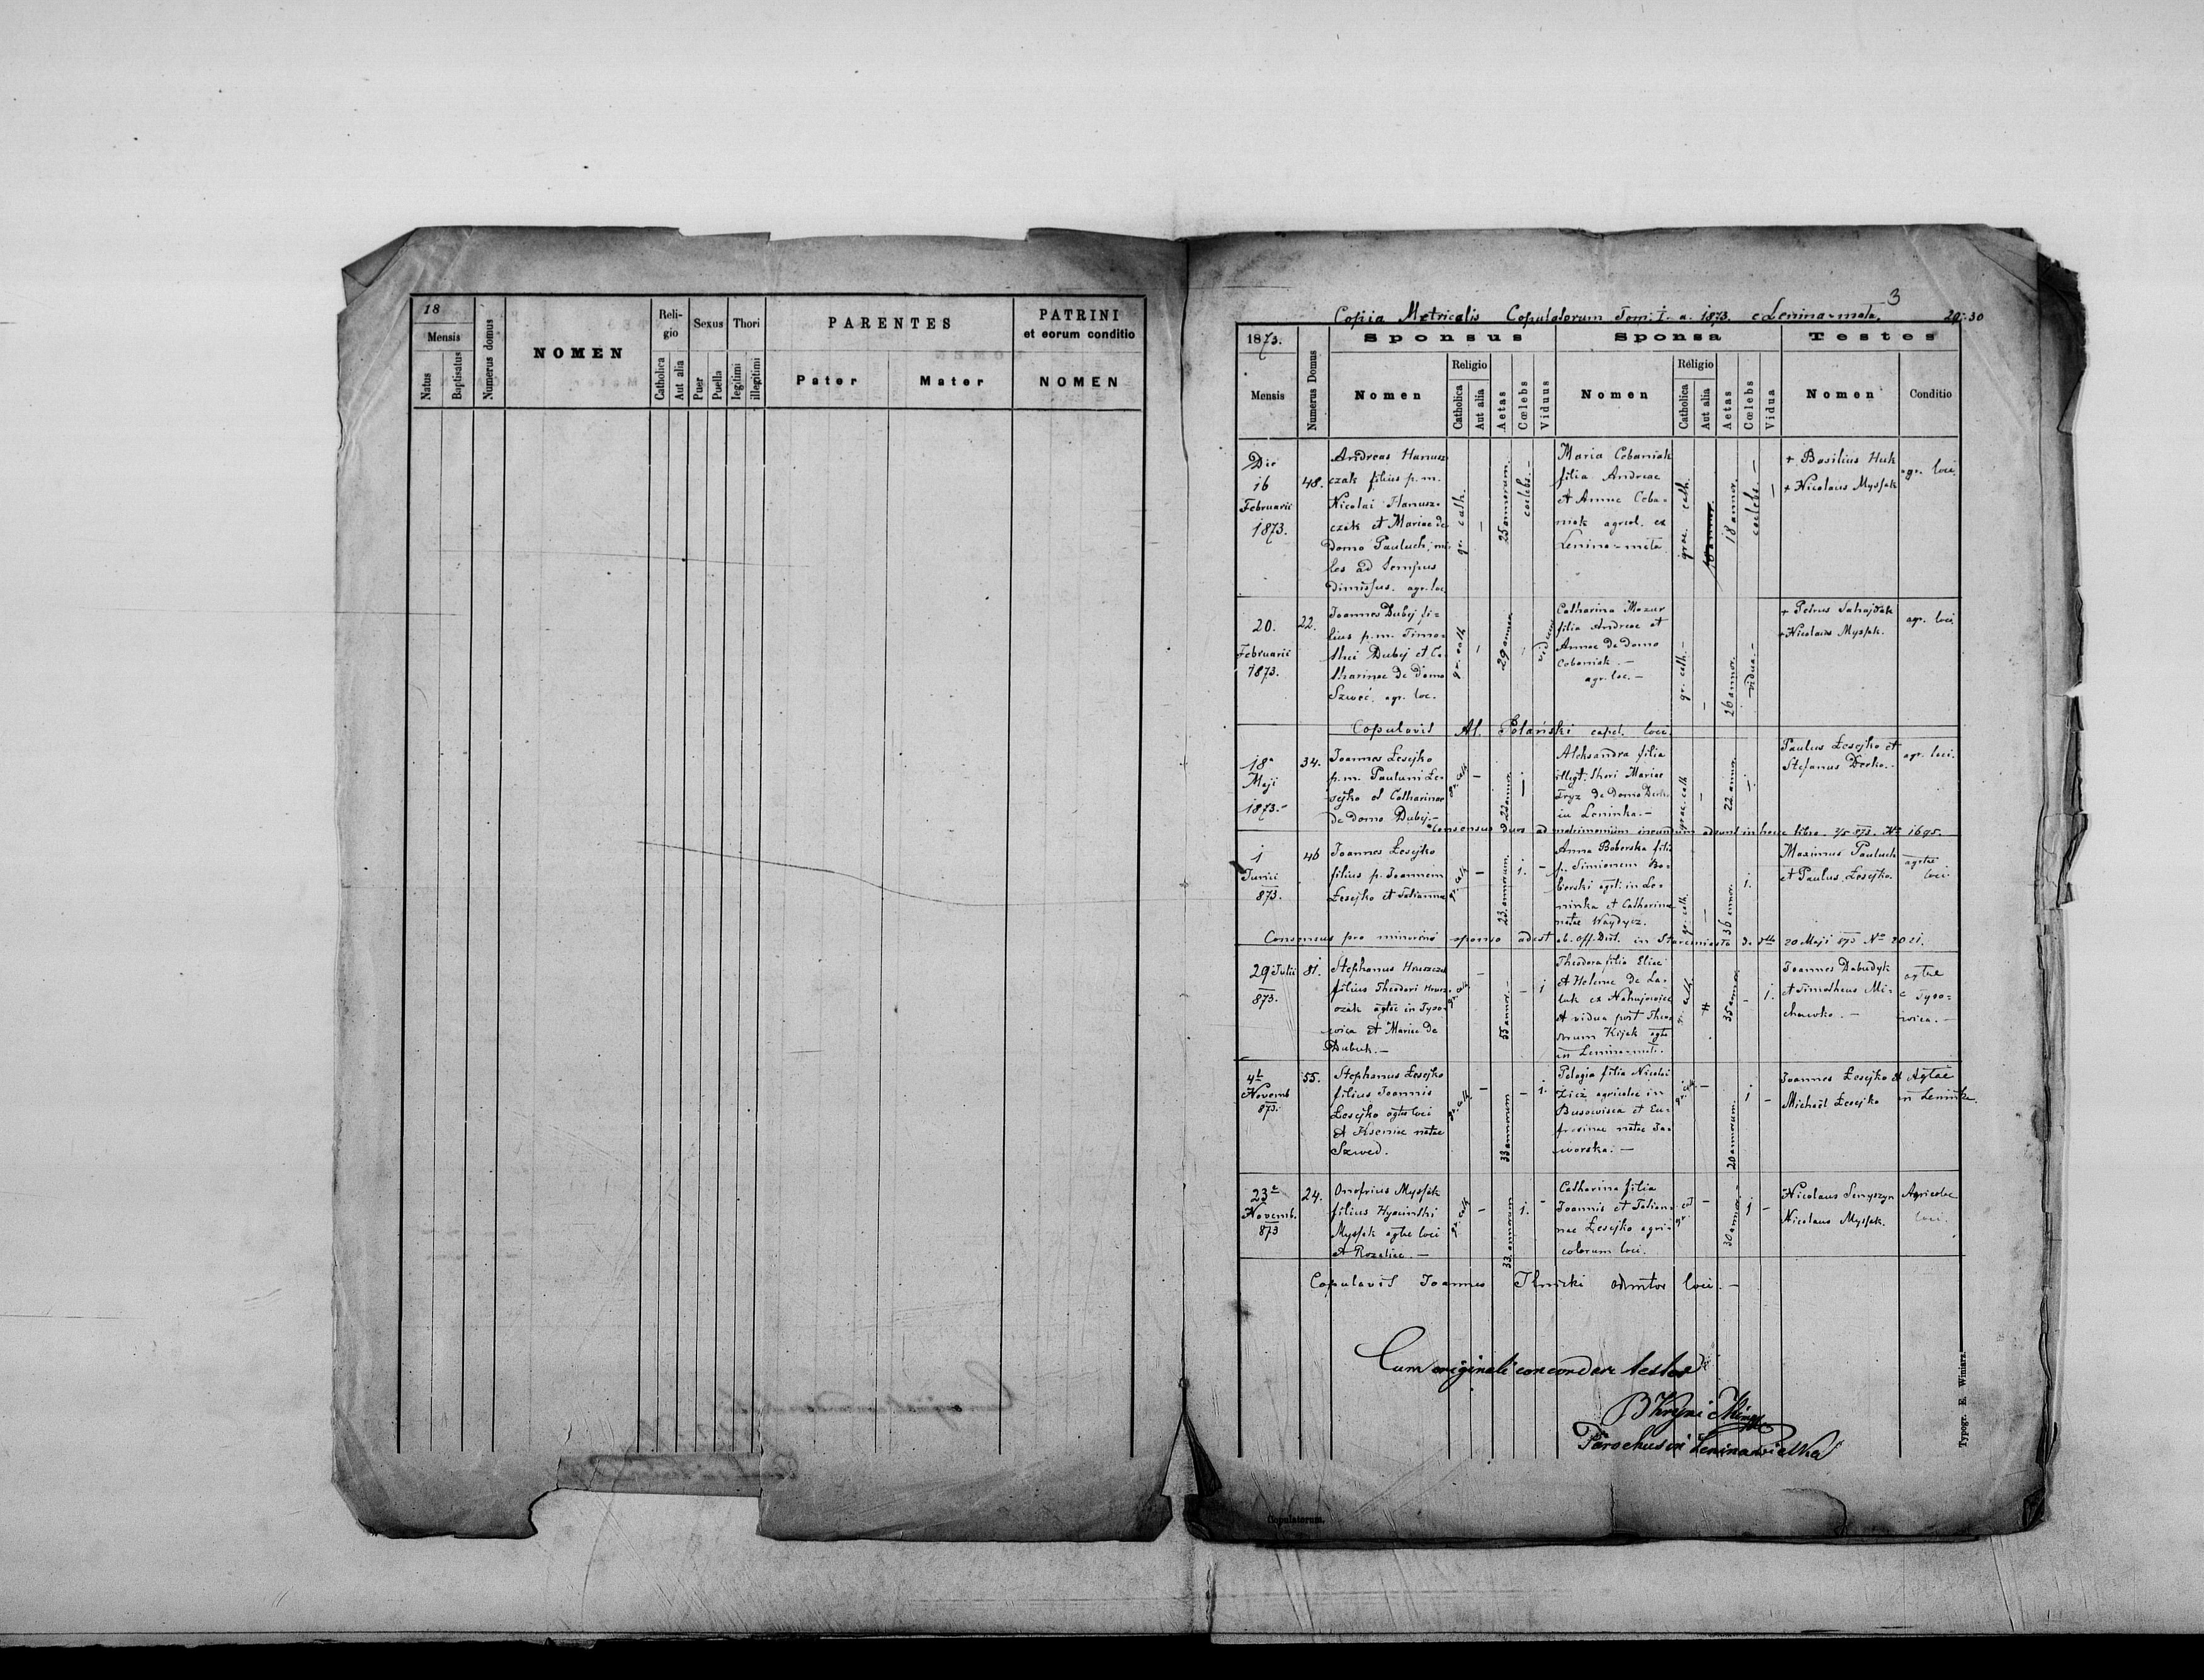 18
Mensis
Natus
Baptisatus
Numerus domus
NOMEN
Reli-
gio
Catholica
Aut alia
Sexus
Puer
Puella
Thori
legitimi
illegitimi
PARENTES
Pater
Mater
PATRINI
et eorum conditio
NOMEN
3
Copia Metricalis Copulatorum Tom: I. a. 1873. e Lenina-mała. 29-30
1873.
Mensis
Numerus Domus
Sponsus
Nomen
Religio
Catholica
Aut alia
Aetas
Cœlebs
Viduus
Sponsa
Nomen
Religio
Catholica
Aut alia
Aetas
Cœlebs
Vidua
Testes
Nomen
Conditio
Die
16
Februarii
1873.
48.
Andreas Hanusz
czak filius p.m.
Nicolai Hanusz-
czak et Mariae de
domo Pauluch, mi-
les ad tempus
dimissus. agr. loc.
gr. cath.
-
25 annorum
coelebs. -
Maria Cebaniak
filia Andreae
et Annae Ceba-
niak agricol. ex
Lenina-mała
grae. cath.
18 annor.
coelebs -
+ Basilius Huk
+ Nicolaus Myssak
agr. loci
20.
Februarii
1873.
22.
Joannes Dubij fi-
lius p.m. Timo-
thei Dubij et Ca-
tharinae de domo
Szweć. agr. loc.
gr. cath
29 annor
viduus
Catharina Mazur
filia Andreae et
Annae de domo
Cebaniak. -
agr. loc. -
gr. cath. -
26 annor.
vidua. -
+ Petrus Sahajdak
+ Nicolaus Myssak.
agr. loci
Copulavit Al. Polański capel. loci
18a
Maji
1873.-
34.
Joannes Łesejko
p.m. Paulum Łe-
sejko et Catharinae
de domo Dubij.-
gr. cath
-
22 annor
Aleksandra filia
illegt. thori Mariae
Fryz de domo
in Leninka.-
grae. cath
22 annor.
Paulus Łesejko et
Stefanus
agr. loci.
Consensus duos ad matrimonium ineundum adsunt in hocce libro. 2/5 873. No 1695.
1
Junii
873.
46
Joannes Łesejko
filius p. Joannem
Łesejko et Julianna
gr. cath
-
23. annorum
1.
-
Anna Boberska filia
p. Simionem Bo-
berski agrl. in Le-
ninka et Catharina
natae Waydycz.
gr. cath.
-
36 annor.
1.
Maximus Pauluch
et Paulus Łesejko.
agrlae
loci
Consensus pro minorinò sponso adest ab. off. Dist. in Staremiasto de dtto 20 Maji 873 No 2021.
29 Julii
873.
81.
Stephanus Hruszczak
filius Theodori Hrusz-
czak agtae in Tyso-
wica et Mariae de
Dubuk.-
gr. cath
-
55 annor. -
-
1
Theodora filia Eliae
et Helenae de La-
buk ex Nahujowice
et vidua post Theo
dorum Kijak agtae
in Lenina-mał.
gr. cath.
35 annor
-
1.
Joannes Dabudyk
et Timotheus Mi-
chawko. -
agtae
e Tyso-
wica. -
4t
Novemb
873.
55.
Stephanus Łesejko
filius Joannis
Łesejko agtae loci
et Kseniae natae
Szwed.
gr. cath.
-
33 annorum
-
1.
Pelagia filia Nicolai
Zicz agricolae in
Busowiska et Eu-
frozinae natae Ja-
worska. -
gr. cath
-
20 annorum.
1
-
Joannes Łesejko et
Michaël Łesejko
Agtae
in Leninka.
23a
Novemb.
873
24.
Onofrius Myssak
filius Hyacinthi
Myssak agtae loci
et Rozaliae. -
gr. cath
-
33. annorum
1.
-
Catharina filia
Joannis et Julian-
nae Łesejko agri-
colarum loci.
gr. cat
-
30 annor. -
1
-
Nicolaus Senyszyn
Nicolaus Myssak.
Agricolae
loci.
Copulavit Joannes Ilnicki admtor loci. -
Cum originali concordare testor
Parochus in Lenina wielka
Copulatorum.
Typogr. E. Winiarz.